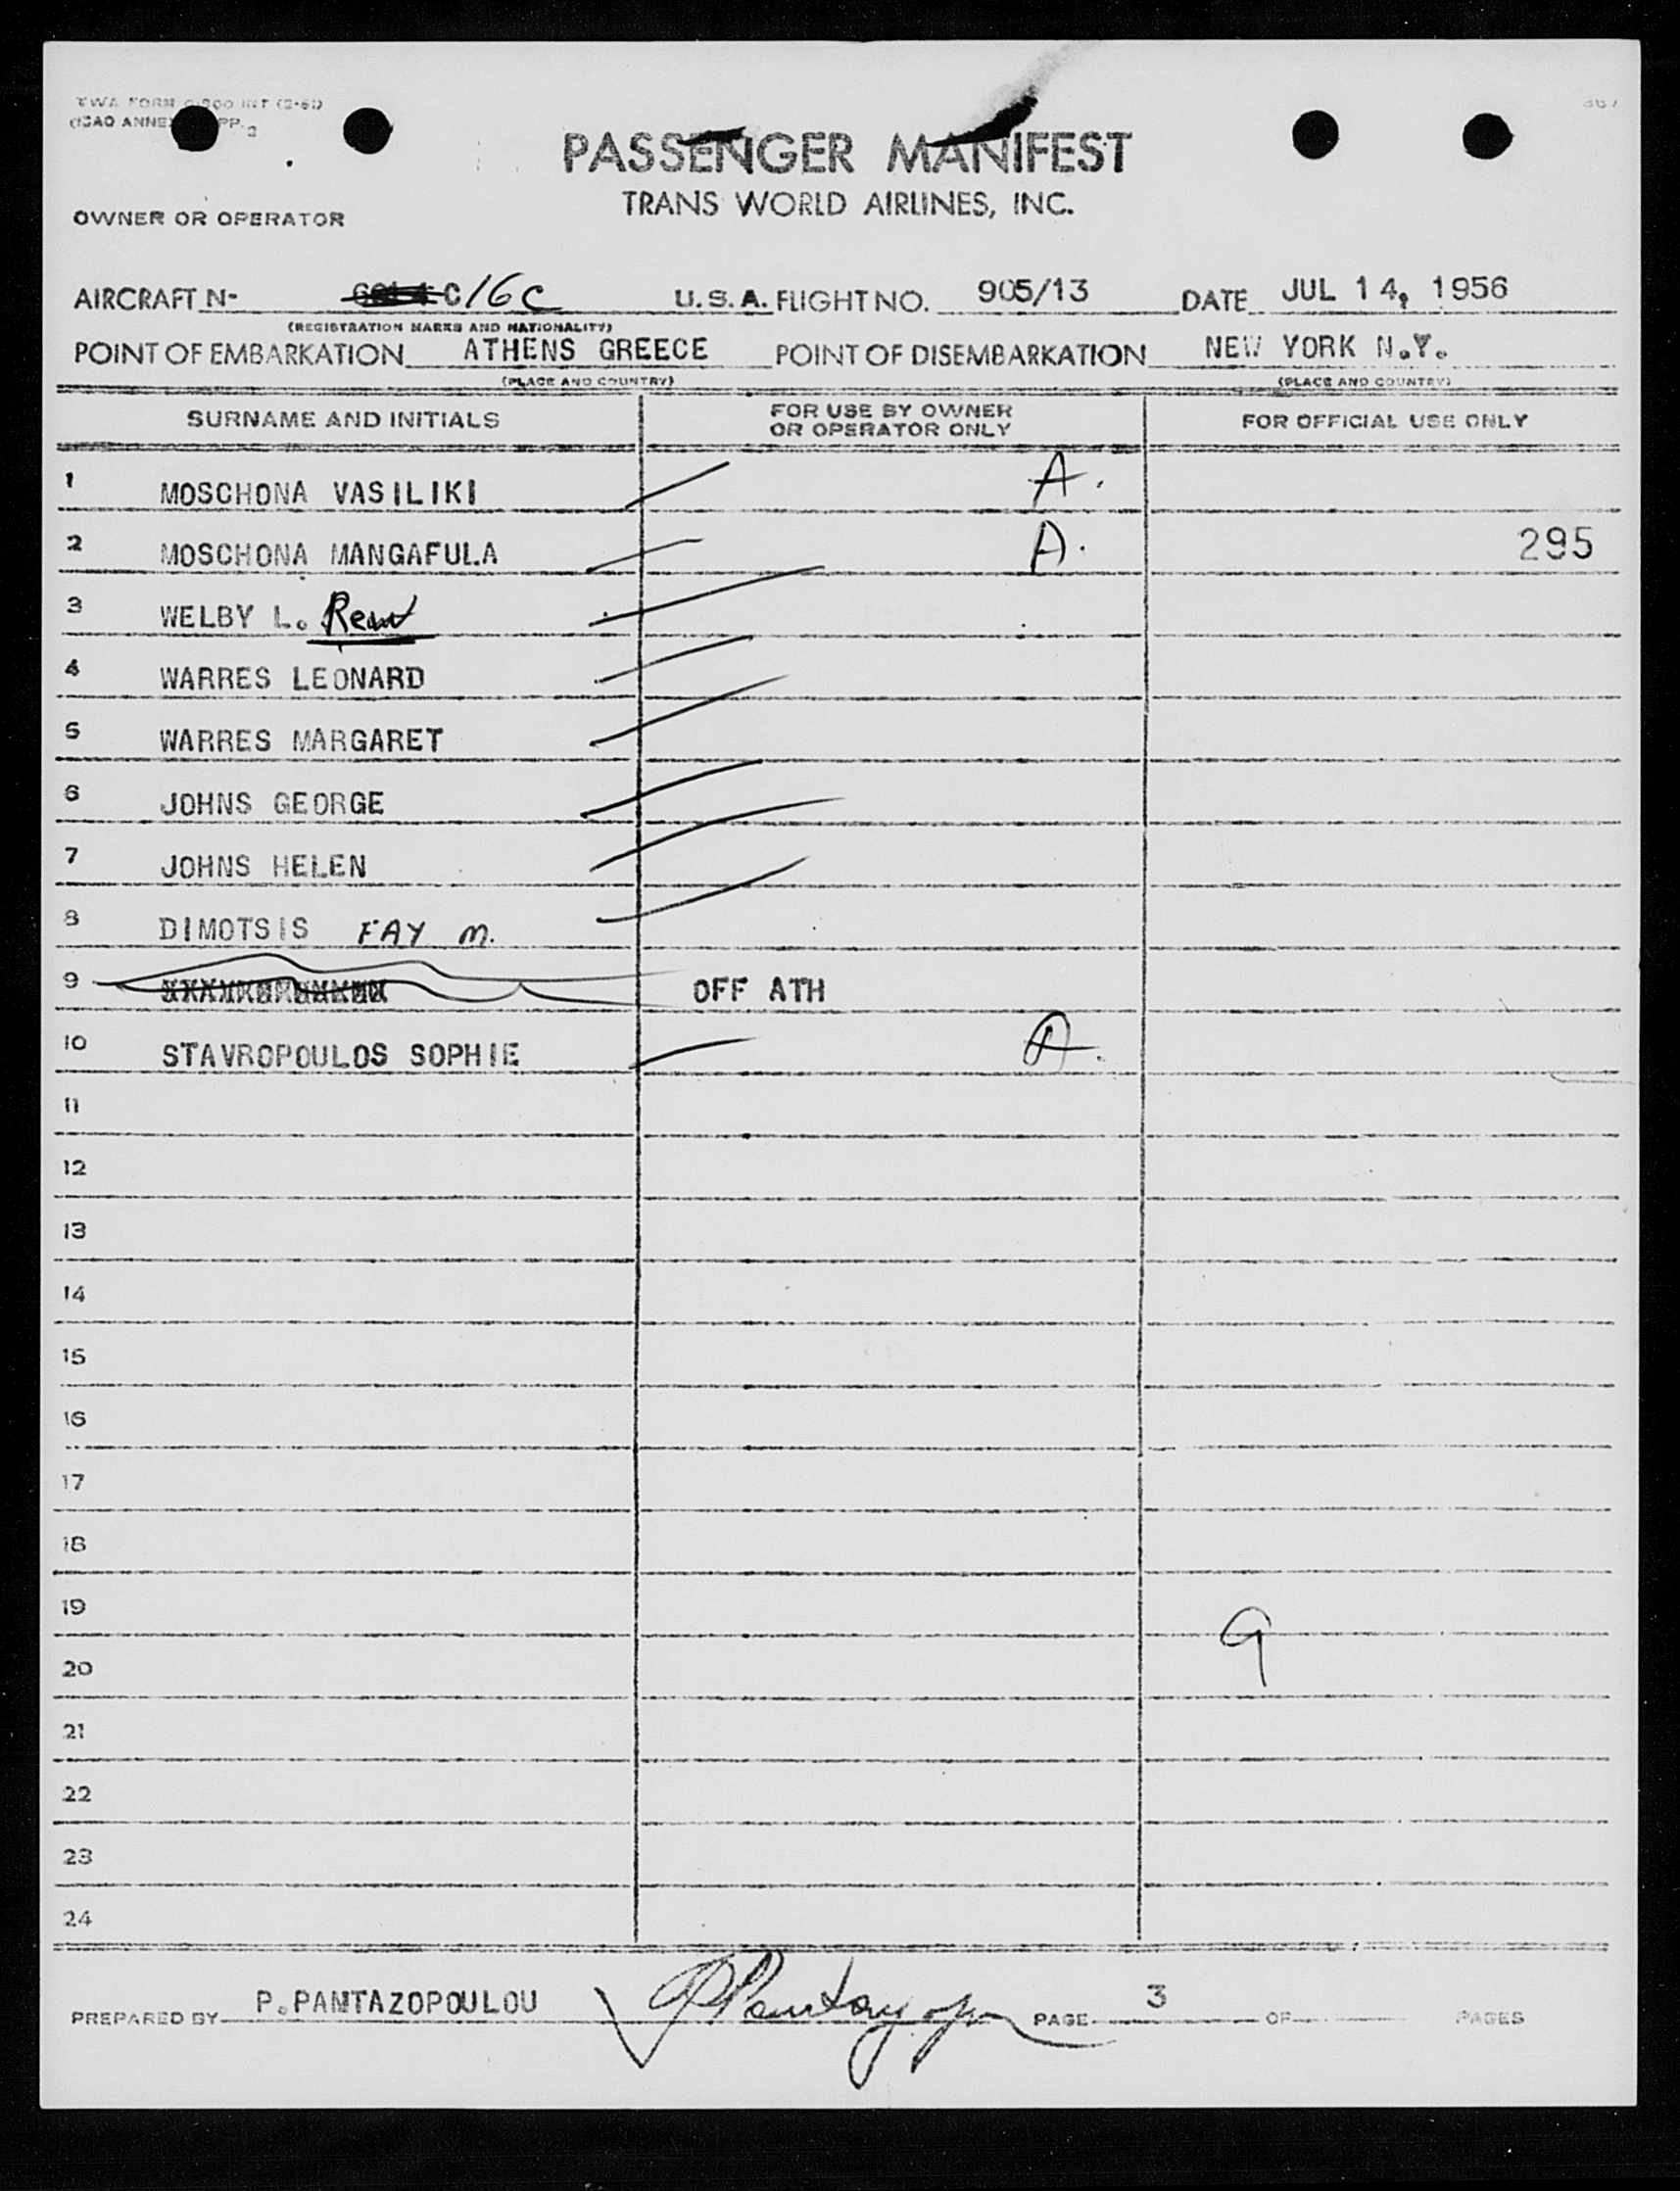 TWA FORM INT (2-51)
(ICAO ANNEX PP. 2
PASSENGER MANIFEST
TRANS WORLD AIRLINES, INC.
OWNER OR OPERATOR
AIRCRAFT N- C 16C U.S.A. FLIGHT NO. 905/13 DATE JUL 14, 1956
(REGISTRATION MARKS AND NATIONALITY)
POINT OF EMBARKATION ATHENS GREECE POINT OF DISEMBARKATION NEW YORK N.Y.
(PLACE AND COUNTRY) (PLACE AND COUNTRY)
SURNAME AND INITIALS FOR USE BY OWNER OR OPERATOR ONLY FOR OFFICIAL USE ONLY
1 MOSCHONA VASILIKI A.
2 MOSCHONA MANGAFULA A. 295
3 WELBY L.
4 WARRES LEONARD
5 WARRES MARGARET
6 JOHNS GEORGE
7 JOHNS HELEN
8 DIMOTSIS FAY M.
9 OFF ATH
10 STAVROPOULOS SOPHIE A.
11
12
13
14
15
16
17
18
19
9
20
21
22
23
24
PREPARED BY P.PANTAZOPOULOU PAGE 3 OF PAGES